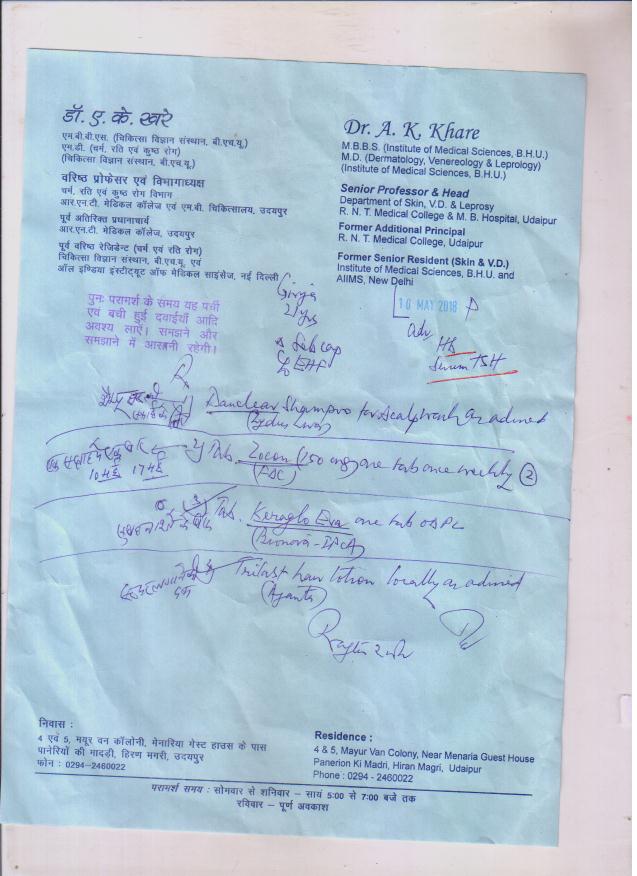 डॉ. ए. के. खरे
एम.बी.बी.एस. (चिकित्सा विज्ञान संस्थान, बी.एच.यू.)
एम.डी. (चर्म, रति एवं कुष्ठ रोग)
(चिकित्सा विज्ञान संस्थान, बी.एच.यू.)
वरिष्ठ प्रोफेसर एवं विभागाध्यक्ष
चर्म, रति एवं कुष्ठ रोग विभाग
आर.एन.टी. मेडिकल कॉलेज एवं एम.बी. चिकित्सालय, उदयपुर
पूर्व अतिरिक्त प्रधानाचार्य
आर.एन.टी. मेडिकल कॉलेज, उदयपुर
पूर्व वरिष्ठ रेजिडेन्ट (चर्म एवं रति रोग)
चिकित्सा विज्ञान संस्थान, बी.एच.यू. एवं
ऑल इण्डिया इंस्टीट्यूट ऑफ मेडिकल साइंसेज, नई दिल्ली
Dr. A. K. Khare
M.B.B.S. (Institute of Medical Sciences, B.H.U.)
M.D. (Dermatology, Venereology & Leprology)
(Institute of Medical Sciences, B.H.U.)
Senior Professor & Head
Department of Skin, V.D. & Leprosy
R. N. T. Medical College & M. B. Hospital, Udaipur
Former Additional Principal
R. N. T. Medical College, Udaipur
Former Senior Resident (Skin & V.D.)
Institute of Medical Sciences, B.H.U. and
AIIMS, New Delhi
पुनः परामर्श के समय यह पर्ची
एवं बची हुई दवाईयाँ आदि
अवश्य लाएं। समझने और
समझाने में आसानी रहेगी।
10 MAY 2018
Adv
Hb
Serum TSH
Girja
21 yrs
Danclear Shampoo for scalp wash as advised
Tab. Zocon (150 mg) one tab once weekly 2
(FDC)
Tab. Keraglo Eva one tab
Trilast hair lotion locally as advised
(Ajanta)
निवास :
4 एवं 5, मयूर वन कॉलोनी, मेनारिया गेस्ट हाउस के पास
पानेरियों की मादड़ी, हिरण मगरी, उदयपुर
फोन : 0294-2460022
Residence :
4 & 5, Mayur Van Colony, Near Menaria Guest House
Panerion Ki Madri, Hiran Magri, Udaipur
Phone : 0294 - 2460022
परामर्श समय : सोमवार से शनिवार – सायं 5:00 से 7:00 बजे तक
रविवार – पूर्ण अवकाश